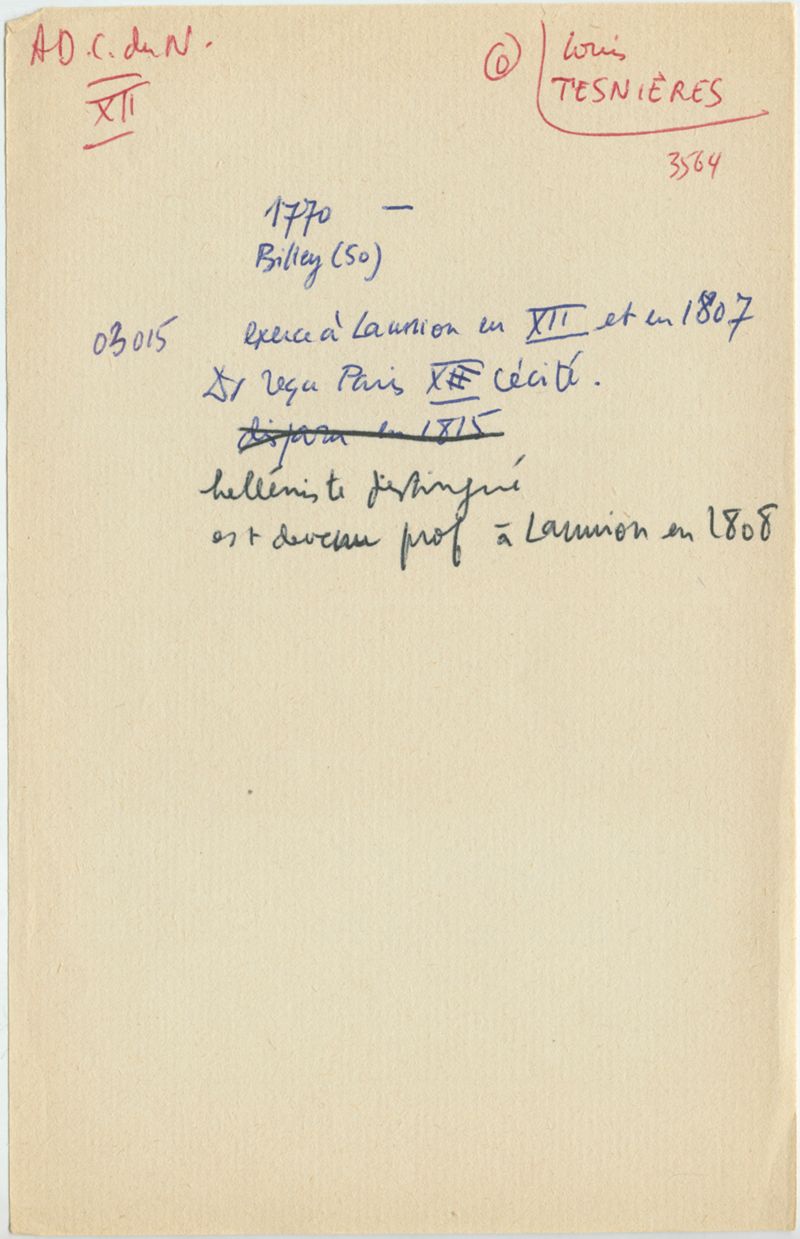 A D C. du N.
XII
(O) Louis
TESNIÈRES
3564
1770 —
Billey (50)
03015 exerce à Lannion en XII et en 1807
Dr reçu Paris XII Cécité.
disparu en 1815
helléniste distingué
est devenu prof à Lannion en 1808